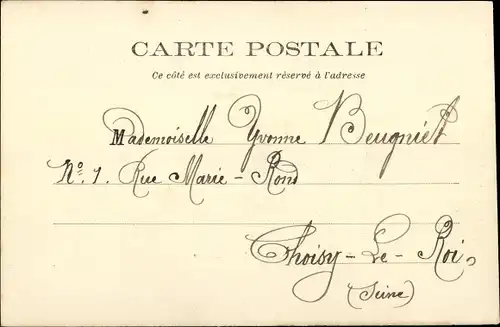 CARTE POSTALE
Ce côté est exclusivement réservé à l'adresse
Mademoiselle Yvonne Beugniet
Nº 1. Rue Marie-Rond
Choisy-Le-Roi,
(Seine)